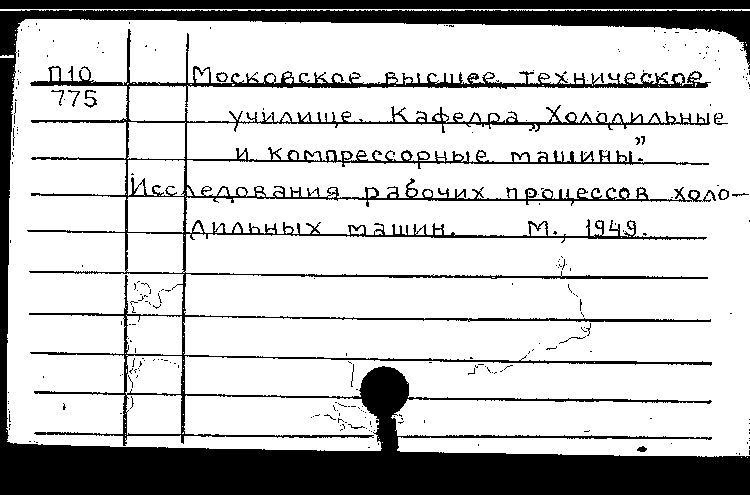 П10 Московское высшее техническое
775
училище. Кафедра „Холодильные
и компрессорные машины."
Исследования рабочих процессов холо-
дильных машин. М., 1949.